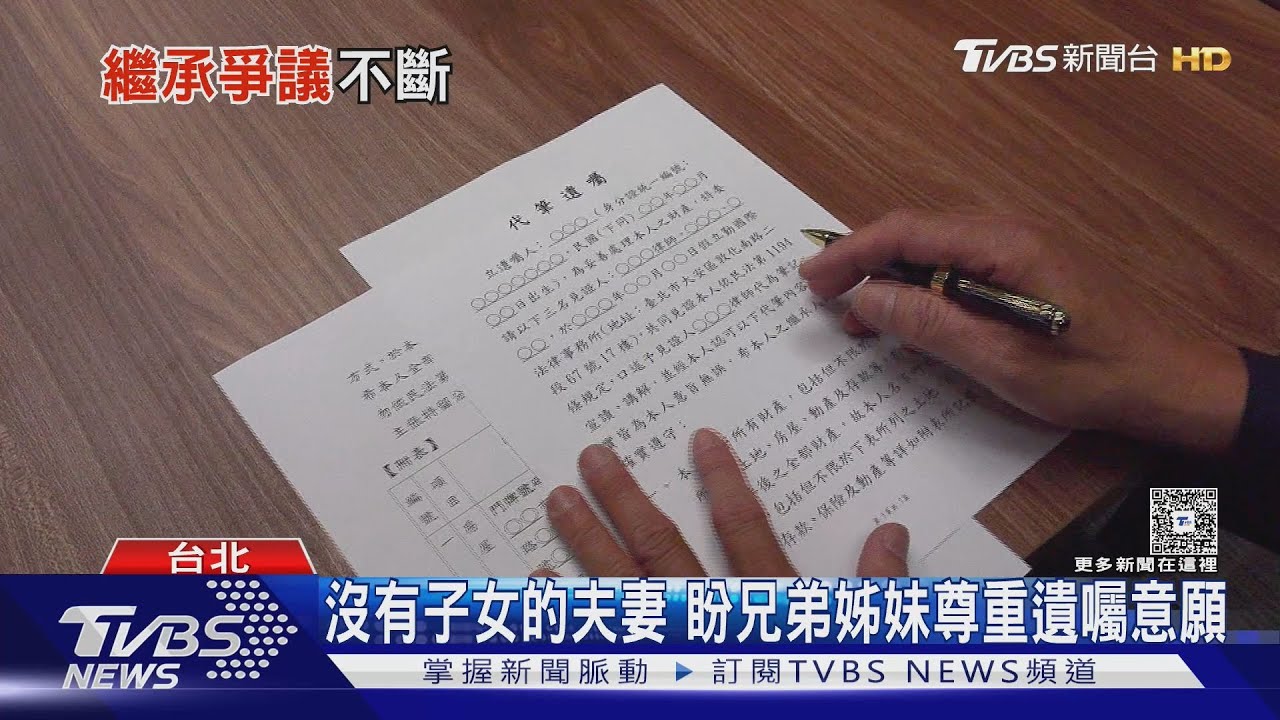 繼承爭議不斷
TVBS新聞台 HD
代筆遺囑
立遺囑人：○○○（身分證統一編號：
○○○○○○○，民國（下同）○○年○○月
○○日出生），為妥善處理本人之財產，特委
請以下三名見證人：○○○律師、
○○，於○○○年○○月○○日假立勤國際
法律事務所（地址：臺北市大安區敦化南路二
段67號17樓），共同見證本人依民法第1194
條規定，口述予見證人○○○律師代為筆記
宣讀、講解，並經本人認可以下代筆內容
皆為本人意旨無誤，希本人之繼承人
確實遵守：
一、本 所有財產，包括但不限
土地、房屋、動產及存款等
後之全部財產，故本人名下所
包括但不限於下表所列之土地
存款、保險及動產等詳如附表所記載
方式，於本
希本人全
【附表】
編號
項目
一
房屋
門牌號
更多新聞在這裡
台北
TVBS NEWS
沒有子女的夫妻 盼兄弟姊妹尊重遺囑意願
掌握新聞脈動 ▶ 訂閱TVBS NEWS頻道